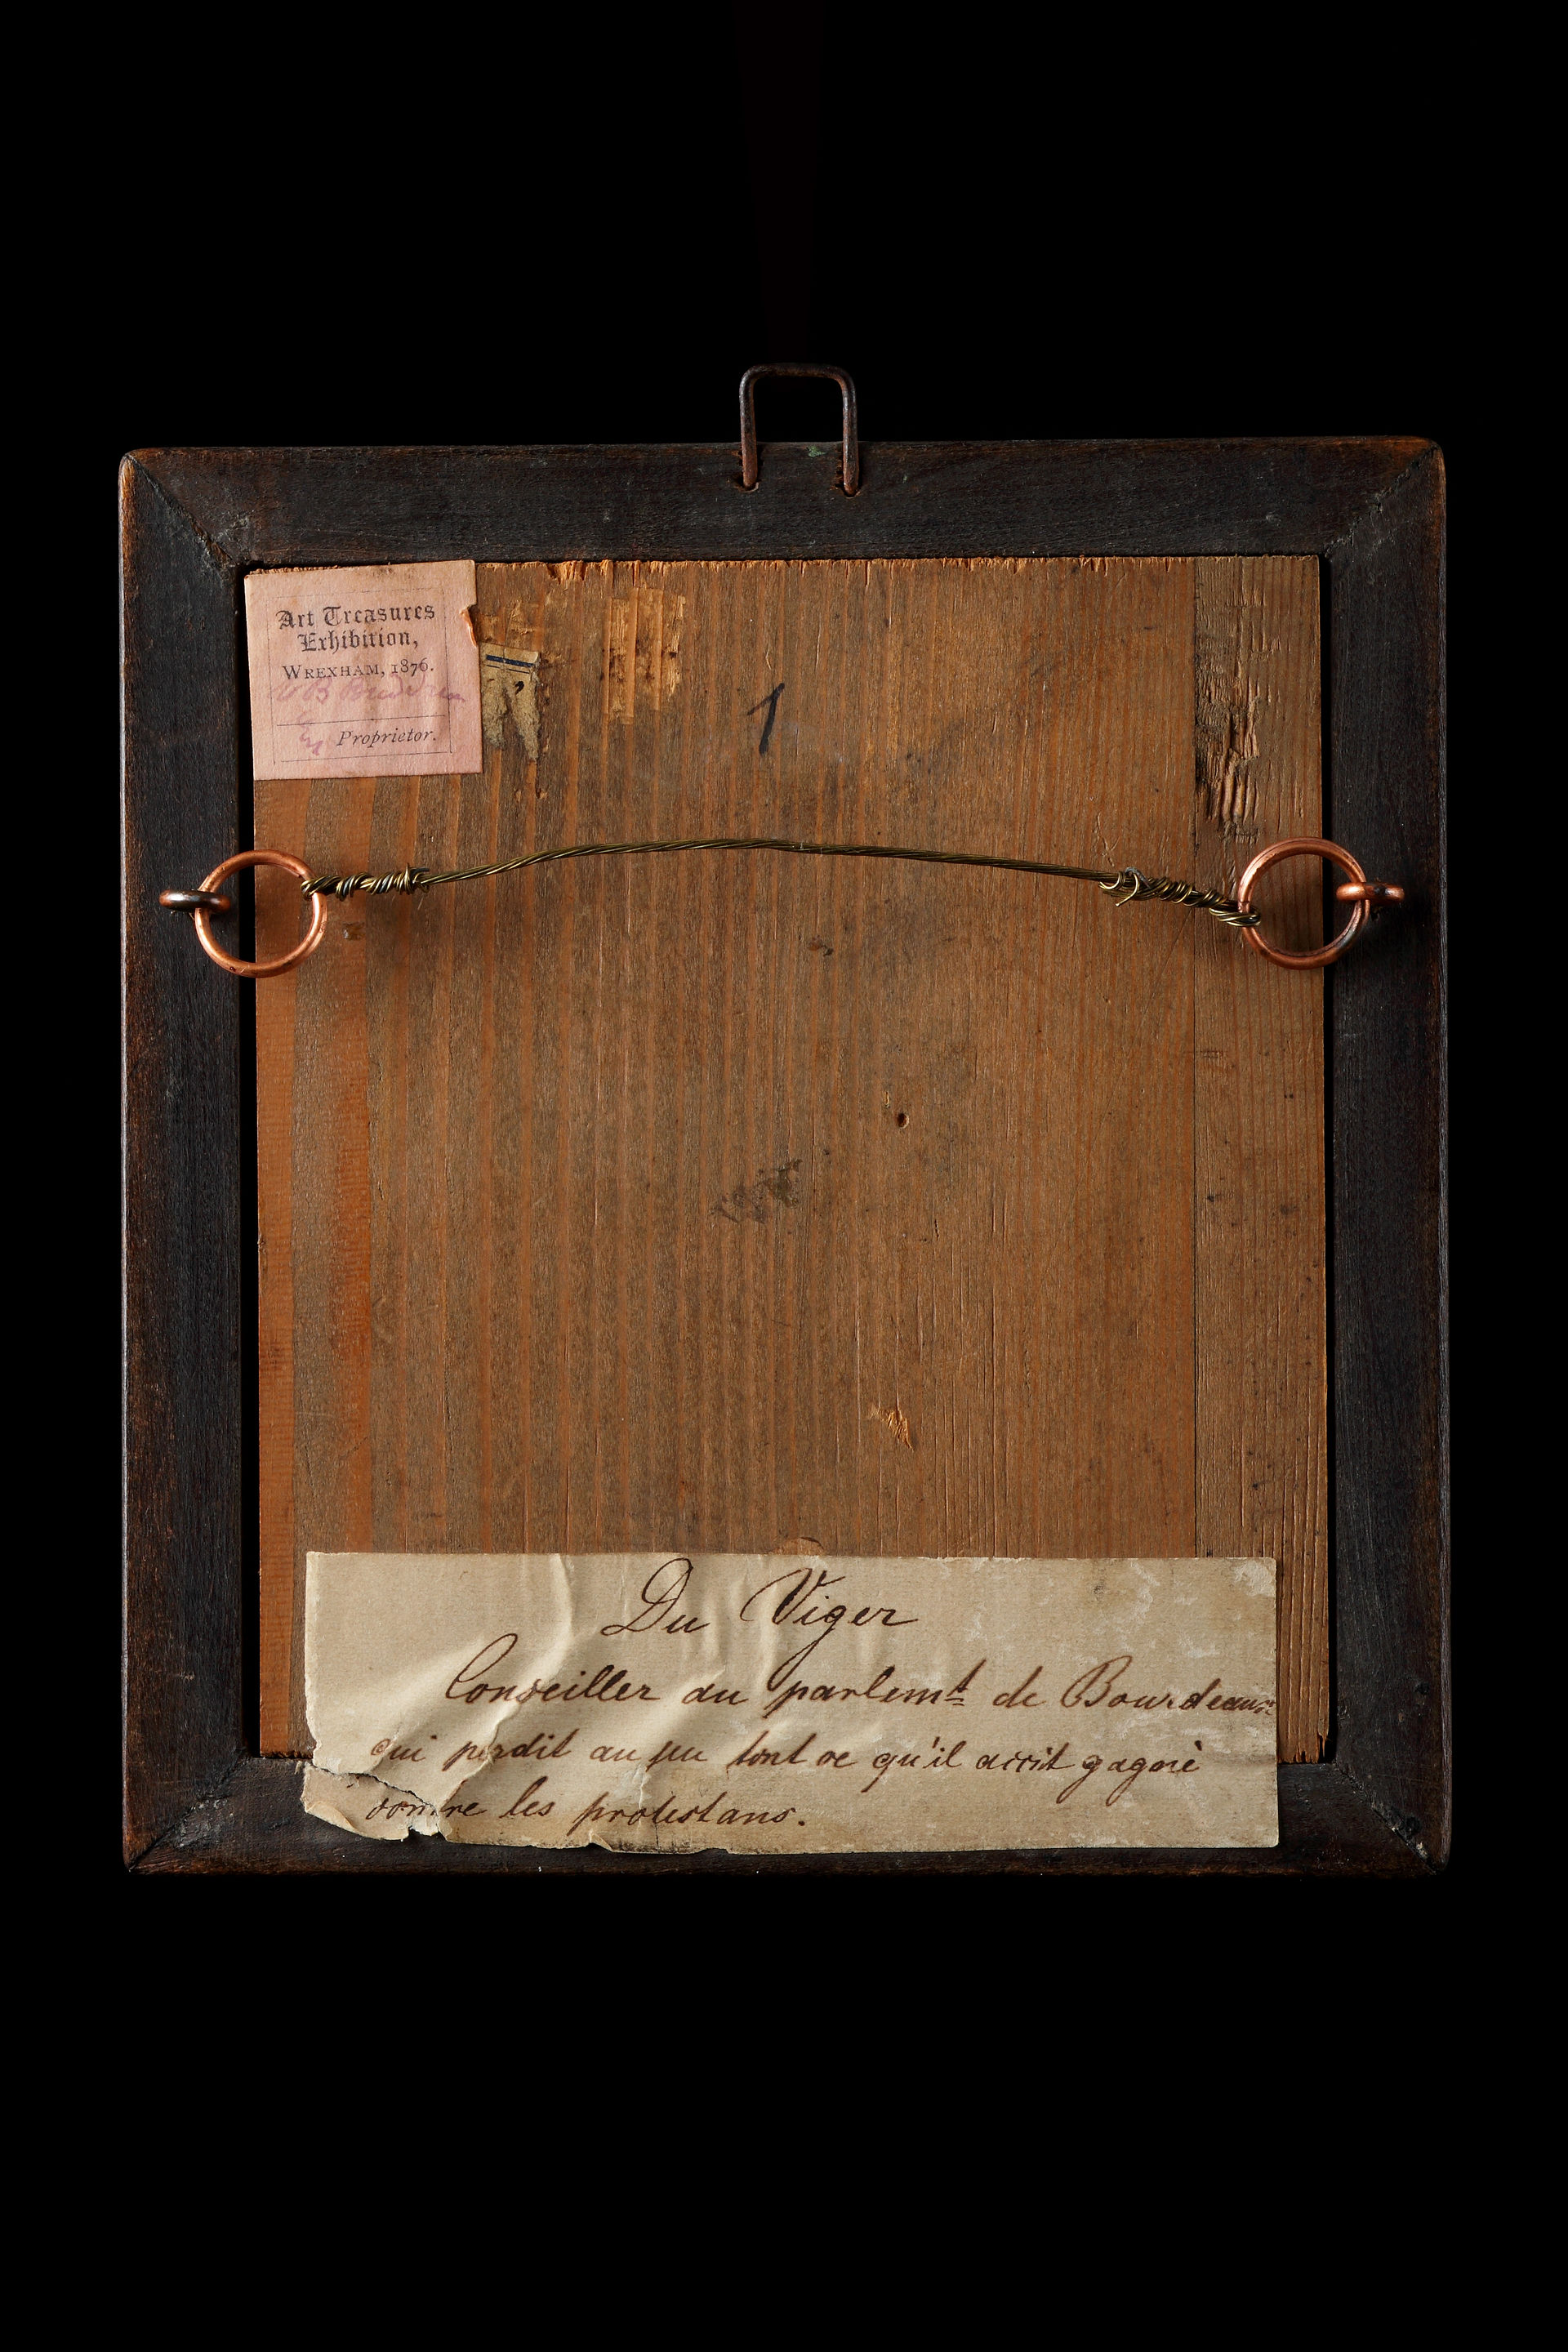 Art Treasures
Exhibition,
WREXHAM, 1876.
Proprietor.
1
Du Viger
Conseiller au parlemt de Bourdeaux
qui perdit au jeu tout ce qu'il avoit gagné
contre les protestans.